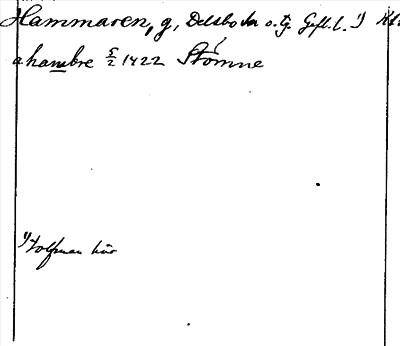 Hammaren, g, Delsbo sn o. tg. Gefl. l. 1) Kh.
a hambre 5/2 1422 Stömne
1) Wolfman har